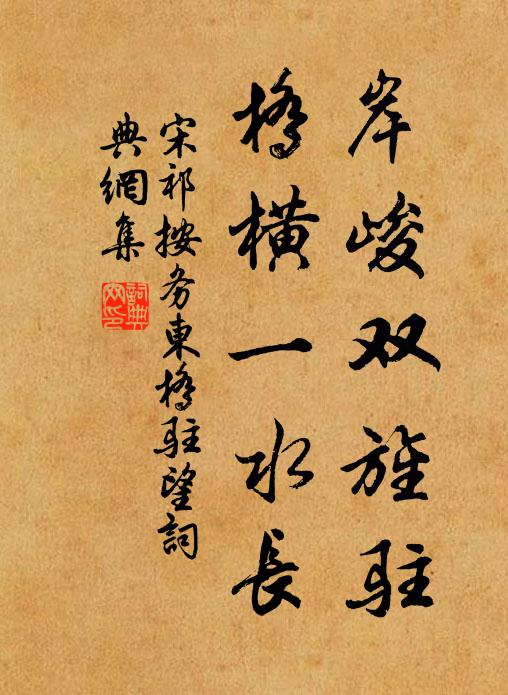 岸峻双旌驻
橋横一水長
宋祁按务東橋驻望詞
典網集
詞典
网印